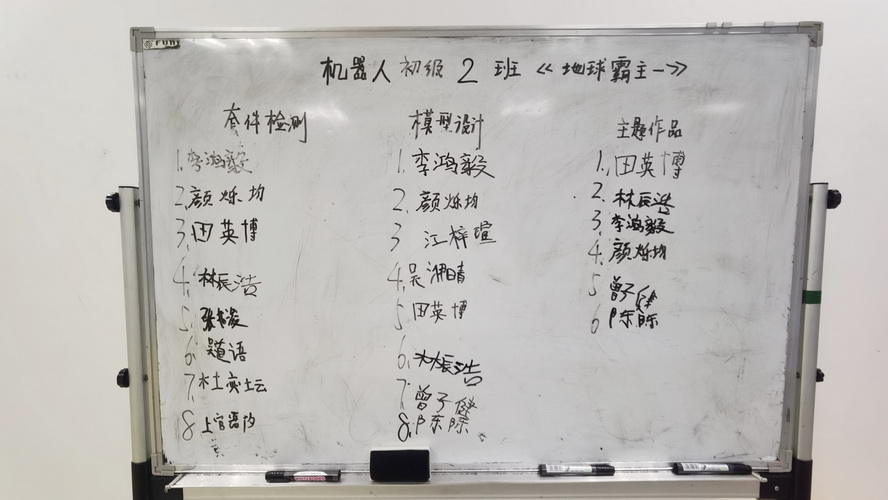 机器人初级 2 班 《地球霸主一》
套件检测
1. 李鸿毅
2. 颜烁均
3. 田英博
4. 林辰浩
5. 张
6.
7. 杜奕坛
8 上官
模型设计
1. 李鸿毅
2. 颜烁均
3 江梓瑄
4. 吴湘晴
5 田英博
6. 林辰浩
7. 曾子健
8. 陈际
主题作品
1. 田英博
2. 林辰浩
3. 李鸿毅
4. 颜烁均
5 曾子健
6 陈际